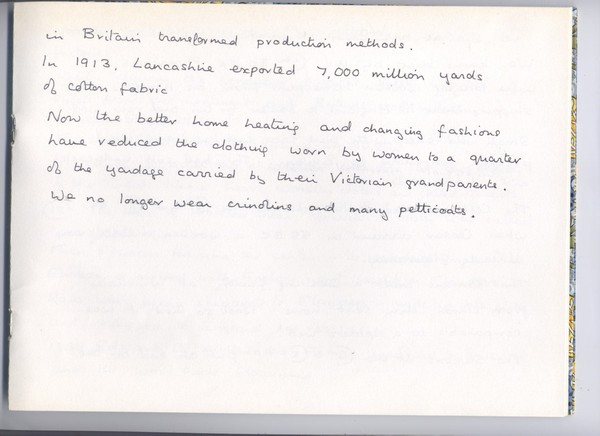 in Britain transformed production methods.
In 1913, Lancashire exported 7,000 million yards
of cotton fabric
Now the better home heating and changing fashions
have reduced the clothing worn by women to a quarter
of the yardage carried by their Victorian grandparents.
We no longer wear crinolins and many petticoats.